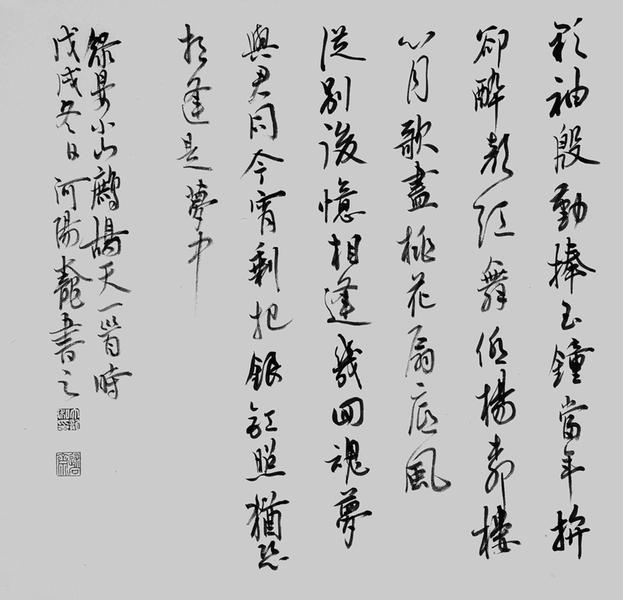 彩袖殷勤捧玉鐘當年拚
卻醉顏紅舞低楊柳樓
心月歌盡桃花扇底風
從別後憶相逢幾回魂夢
與君同今宵剩把銀釭照猶恐
相逢是夢中
錄晏小山鷓鴣天一首時
戊戌冬日河陽書之